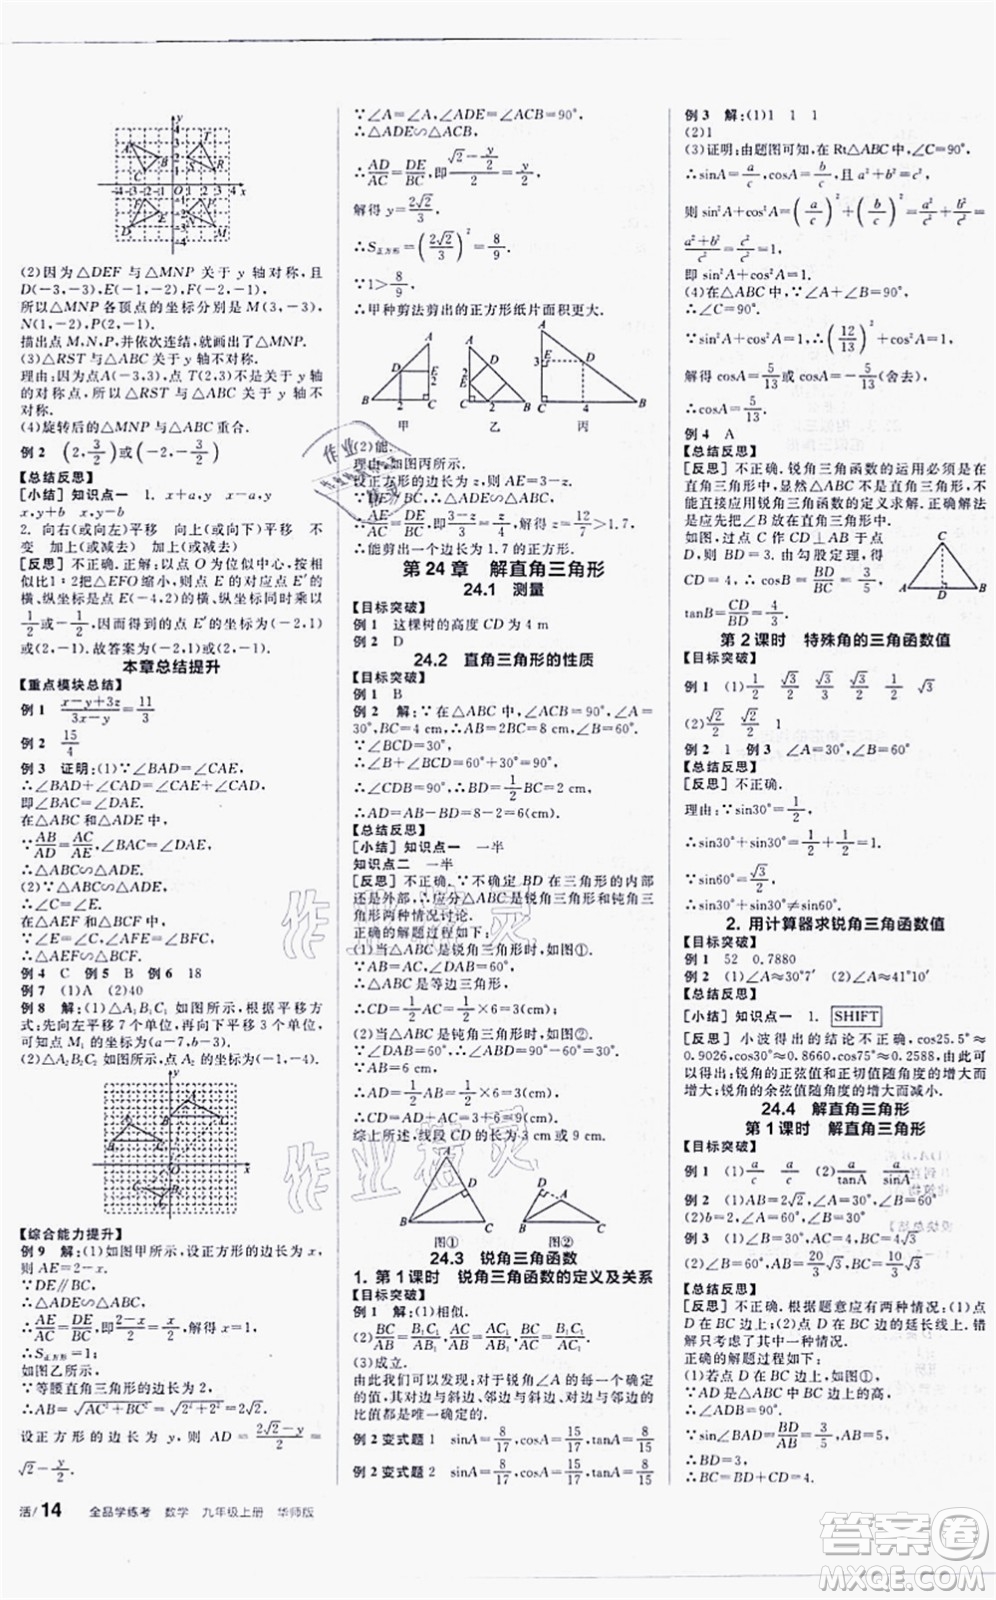 (2)因为△DEF 与△MNP 关于 y 轴对称,且
D(-3,-3),E(-1,-2),F(-2,-1),
所以△MNP 各顶点的坐标分别是 M(3,-3),
N(1,-2),P(2,-1).
描出点 M,N,P,并依次连结,就画出了△MNP.
(3)△RST 与△ABC 关于 y 轴不对称.
理由:因为点 A(-3,3),点 T(2,3)不是关于 y 轴
的对称点,所以△RST 与△ABC 关于 y 轴不
对称.
(4)旋转后的△MNP 与△ABC 重合.
例 2 (2,3/2)或(-2,-3/2)
【总结反思】
[小结] 知识点一 1. x+a,y x-a,y
x,y+b x,y-b
2. 向右(或向左)平移 向上(或向下)平移 不
变 加上(或减去) 加上(或减去)
[反思] 不正确.正解:以点 O 为位似中心,相似
比为1/2,把△EFO 缩小,则点 E 的对应点 E′的
横、纵坐标是点 E(-4,2)的横、纵坐标分别乘
1/2或-1/2.故答案为(-2,1)或(2,-1).
本章总结提升
【重点模块总结】
例 1 (x-y+3z)/(3x-y)=11/3
例 2 15/4
例 3 证明:(1)∵∠BAD=∠CAE,
∴∠BAD+∠CAD=∠CAE+∠CAD,
即∠BAC=∠DAE.
在△ABC 和△ADE 中,
∵AB/AD=AC/AE,∠BAC=∠DAE,
∴△ABC∽△ADE.
(2)∵△ABC∽△ADE,
∴∠ABC=∠ADE.
在△AEF 和△BCF 中,
例 4 C 例 5 B 例 6 18
例 7 (1)A (2)40
例 8 解:(1)△A₁B₁C₁ 如图所示,根据平移方
式:先向左平移 7 个单位,再向下平移 3 个单位,
可知点 M₁ 的坐标为(a-7,b-3).
(2)△A₂B₂C₂ 如图所示,点 A₂ 的坐标为(-1,-4).
【综合能力提升】
例 9 解:(1)如图甲所示,设正方形的边长为 x,
则 AE=2-x.
∵DE∥BC,
∴△ADE∽△ABC,
∴AE/AC=DE/BC,即(2-x)/2=x/2,解得 x=1,
∴S正方形=1;
如图乙所示.
∵等腰直角三角形的边长为 2,
∴AB=√(AC²+BC²)=√(2²+2²)=2√2.
设正方形的边长为 y,则 AD=(2√2-y)/2=
√2-y/2.
∵∠A=∠A,∠ADE=∠ACB=90°,
∴△ADE∽△ACB,
∴AD/AC=DE/BC,即(√2-y/2)/2=y/2,
解得 y=2√2/3,
∴S正方形=(2√2/3)²=8/9.
∵1>8/9,
∴甲种剪法剪出的正方形纸片面积更大.
甲 乙 丙
(2)能.
理由:如图丙所示.
设正方形的边长为 x,则 AE=3-x.
∵DE∥BC,∴△ADE∽△ABC,
∴能剪出一个边长为 1.7 的正方形.
第 24 章 解直角三角形
24.1 测量
【目标突破】
例 1 这棵树的高度 CD 为 4 m
例 2 D
24.2 直角三角形的性质
【目标突破】
例 1 B
例 2 解:∵在△ABC 中,∠ACB=90°,∠A=
30°,BC=4 cm,∴AB=8 cm,∠B=60°,
∴∠BCD=30°.
∵CD 是高,
∴∠CDB=90°,∴BD=1/2BC=2 cm,
∴AD=AB-BD=8-2=6(cm).
【总结反思】
[小结] 知识点一 一半
知识点二 一半
[反思] 不正确.∵不确定 BD 在三角形的内部
还是外部,∴应分△ABC 是锐角三角形和钝角三
角形两种情况讨论.
正确的解题过程如下:
(1)当△ABC 是锐角三角形时,如图①.
∴CD=1/2AC=1/2AB=1/2×6=3(cm).
(2)当△ABC 是钝角三角形时,如图②.
∵AB=6 cm,
∴AD=1/2AB=1/2×6=3(cm),
∴CD=AD+AC=3+6=9(cm).
综上所述,线段 CD 的长为 3 cm 或 9 cm.
图① 图②
24.3 锐角三角函数
1. 第 1 课时 锐角三角函数的定义及关系
【目标突破】
例 1 解:(1)相似.
(2)BC/AB=B₁C₁/AB₁,BC/AC=B₁C₁/AC₁,AC/AB=AC₁/AB₁
(3)成立.
由此我们可以发现:对于锐角 A 的每一个确定
的值,其对边与斜边、邻边与斜边、对边与邻边的
比值都是唯一确定的.
例 2 变式题 1 sinA=8/17 cosA=15/17 tanA=8/15
例 2 变式题 2 sinA=8/17,cosA=15/17,tanA=8/15
例 3 解:(1)1 1 1
(2)1
(3)证明:由题图可知,在 Rt△ABC 中,∠C=90°.
∵sinA=a/c,cosA=b/c,且 a²+b²=c²,
则 sin²A+cos²A=(a/c)²+(b/c)²=a²/c²+b²/c²=
(a²+b²)/c²=c²/c²=1,
即 sin²A+cos²A=1.
(4)在△ABC 中,∵∠A+∠B=90°,
∴∠C=90°.
∵sin²A+cos²A=1,∴(12/13)²+cos²A=1,
解得 cosA=5/13或 cosA=-5/13(舍去),
∴cosA=5/13.
例 4 A
【总结反思】
[反思] 不正确.锐角三角函数的运用必须是在
直角三角形中,显然△ABC 不是直角三角形,不
能直接应用锐角三角函数的定义求解.正确解法
是应先把∠B 放到直角三角形中.
如图,过点 C 作 CD⊥AB 于
点 D,则 sinB=CD/BC,cosB=BD/BC,
tanB=CD/BD=4/3.
第 2 课时 特殊角的三角函数值
【目标突破】
例 1 (1)1/2 √3/2 √3/3 √3/2 1/2 √3
(2)√2/2 √2/2 1
例 2 1 例 3 ∠A=30°,∠B=60°
【总结反思】
[反思] 不正确.
理由:∵sin30°=1/2,
∴sin30°+sin30°=1/2+1/2=1.
∵sin60°=√3/2,
∴sin30°+sin30°≠sin60°.
2. 用计算器求锐角三角函数值
【目标突破】
例 1 52 0.7880
例 2 (1)∠A≈30°7′ (2)∠A≈41°10′
【总结反思】
[小结] 知识点一 1. SHIFT
[反思] 小波得出的结论不正确,cos25.5°≈
0.9026,cos30°≈0.8660,cos75°≈0.2588,由此可以
看出:锐角的正弦值和正切值随角度的增大而
增大;锐角的余弦值随角度的增大而减小.
24.4 解直角三角形
第 1 课时 解直角三角形
【目标突破】
例 1 (1)a/c a/c (2)a/sinA a/tanA
例 2 (1)AB=2√2,∠A=∠B=45°
(2)b=2,∠A=30°,∠B=60°
【总结反思】
[反思] 不正确.此题应有两种情况:(1)点
D 在 BC 上;(2)点 D 在 BC 的延长线上.题中
解只考虑了其中一种情况.
正确的解题过程如下:
(1)若点 D 在 BC 上,如图①.
∴BC=BD+CD=3+1=4.
活/14 全品学练考 数学 九年级上册 华师版
作业精灵
答案圈
MXQE.COM